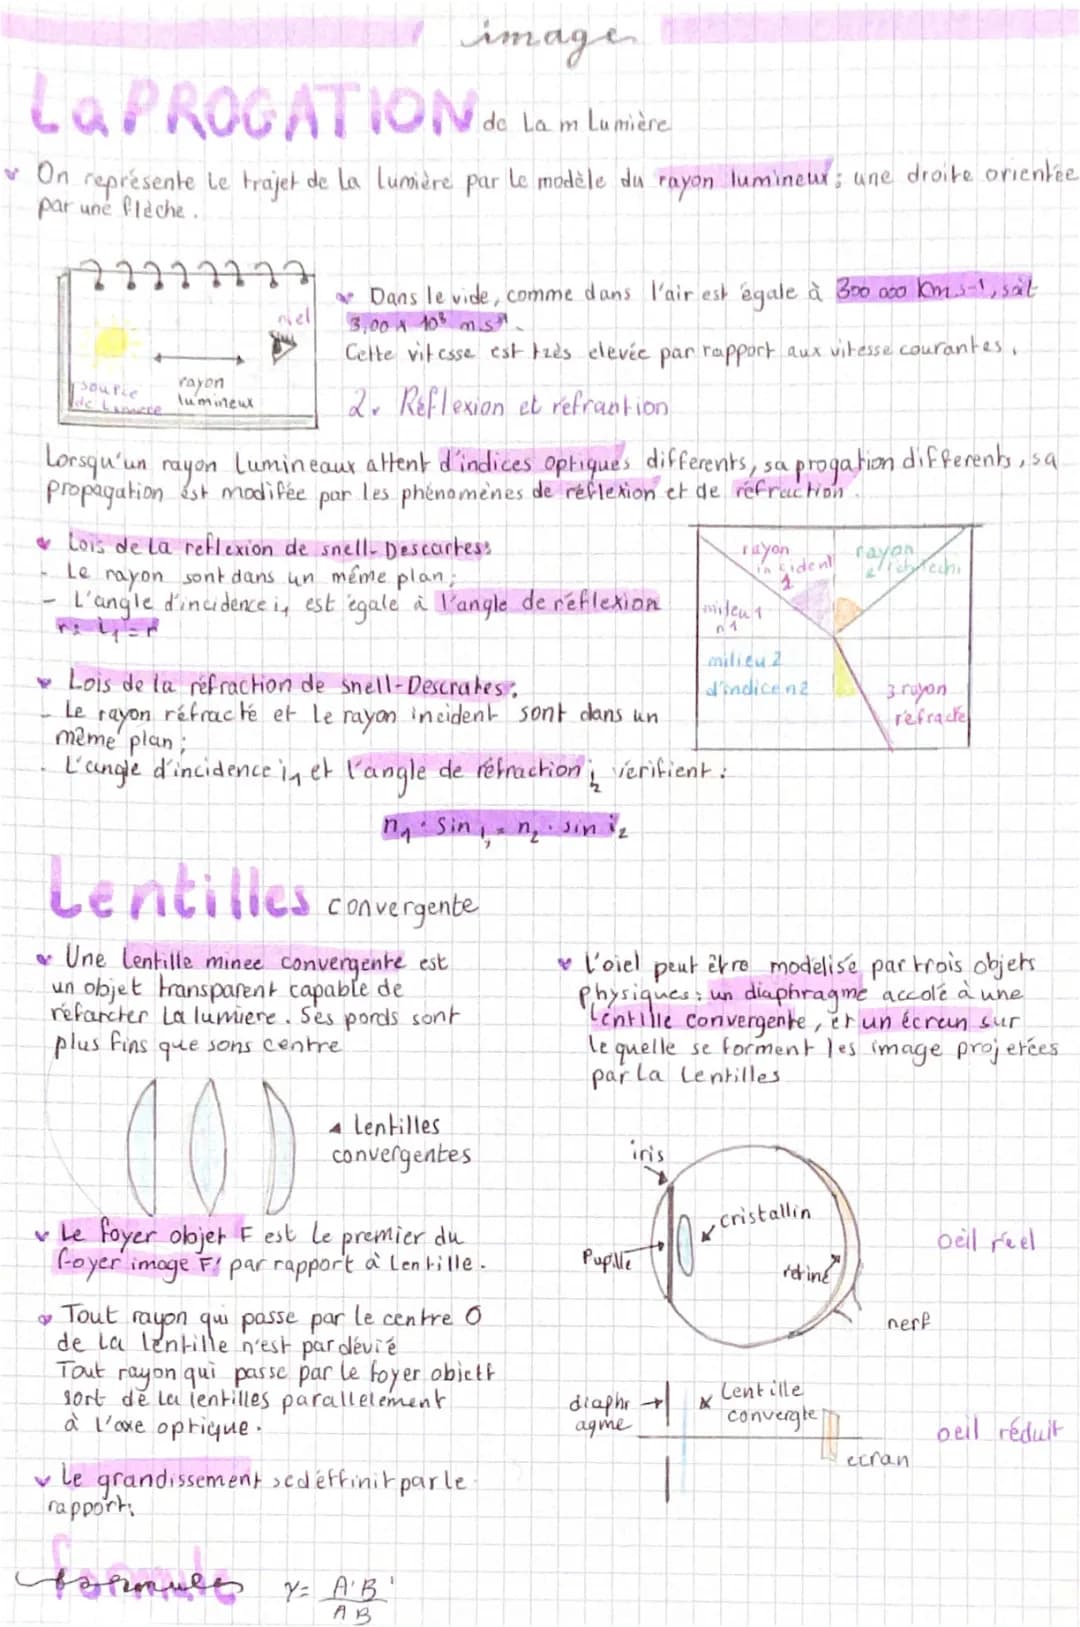 image
La PROGATION de La m Lumière
On représente le trajet de la lumière par le modèle du rayon lumineux; une droite orientée
par une flèche.
oiel
source
de Lumière
rayon
lumineux
Dans le vide, comme dans l'air est égale à 300 000 Km.s-1, soit
3,00 x 10⁸ m.s⁻¹.
Cette vitesse est très elevée par rapport aux vitesse courantes.
2. Réflexion et refrantion
Lorsqu'un rayon Lumineaux attent d'indices optiques differents, sa progation differents, sa
propagation est modifée par les phénomènes de réflexion et de réfraction.
Lois de La reflexion de snell-Descartes:
- Le rayon sont dans un même plan;
- L'angle d'incidence i₁ est égale à l'angle de réflexion
r: i₁=r
rayon
incident
1
rayon
2
milieu 1
n1
milieu 2
d'indice n2
3 rayon
réfracté
Lois de la réfraction de snell-Descrates:
- Le rayon réfracté et le rayon incident sont dans un
même plan;
- L'angle d'incidence i₁ et l'angle de réfraction i₂ vérifient:
n₁ · sin i₁ = n₂ · sin i₂
Lentilles convergente
Une lentille minee convergente est
un objet transparent capable de
réfarcter La lumiere. Ses pords sont
plus fins que sons centre
lentilles
convergentes
Le foyer objet F est le premier du
foyer image F' par rapport à lentille.
Tout rayon qui passe par le centre O
de la lentille n'est par dévié
Tout rayon qui passe par le foyer objett
sort de la lentilles parallelement
à l'axe optique.
Le grandissement se déffinit par le
rapport:
formule
formules
γ= A'B'
AB
L'oiel peut être modelisé par trois objets
physiques: un diaphragme accolé à une
lentille convergente, et un écran sur
le quelle se forment les image projetées
par La lentilles
iris
cristallin
Pupille
rétine
nerf
oeil réel
diaphr
agme
Lentille
convergte
ecran
oeil réduit